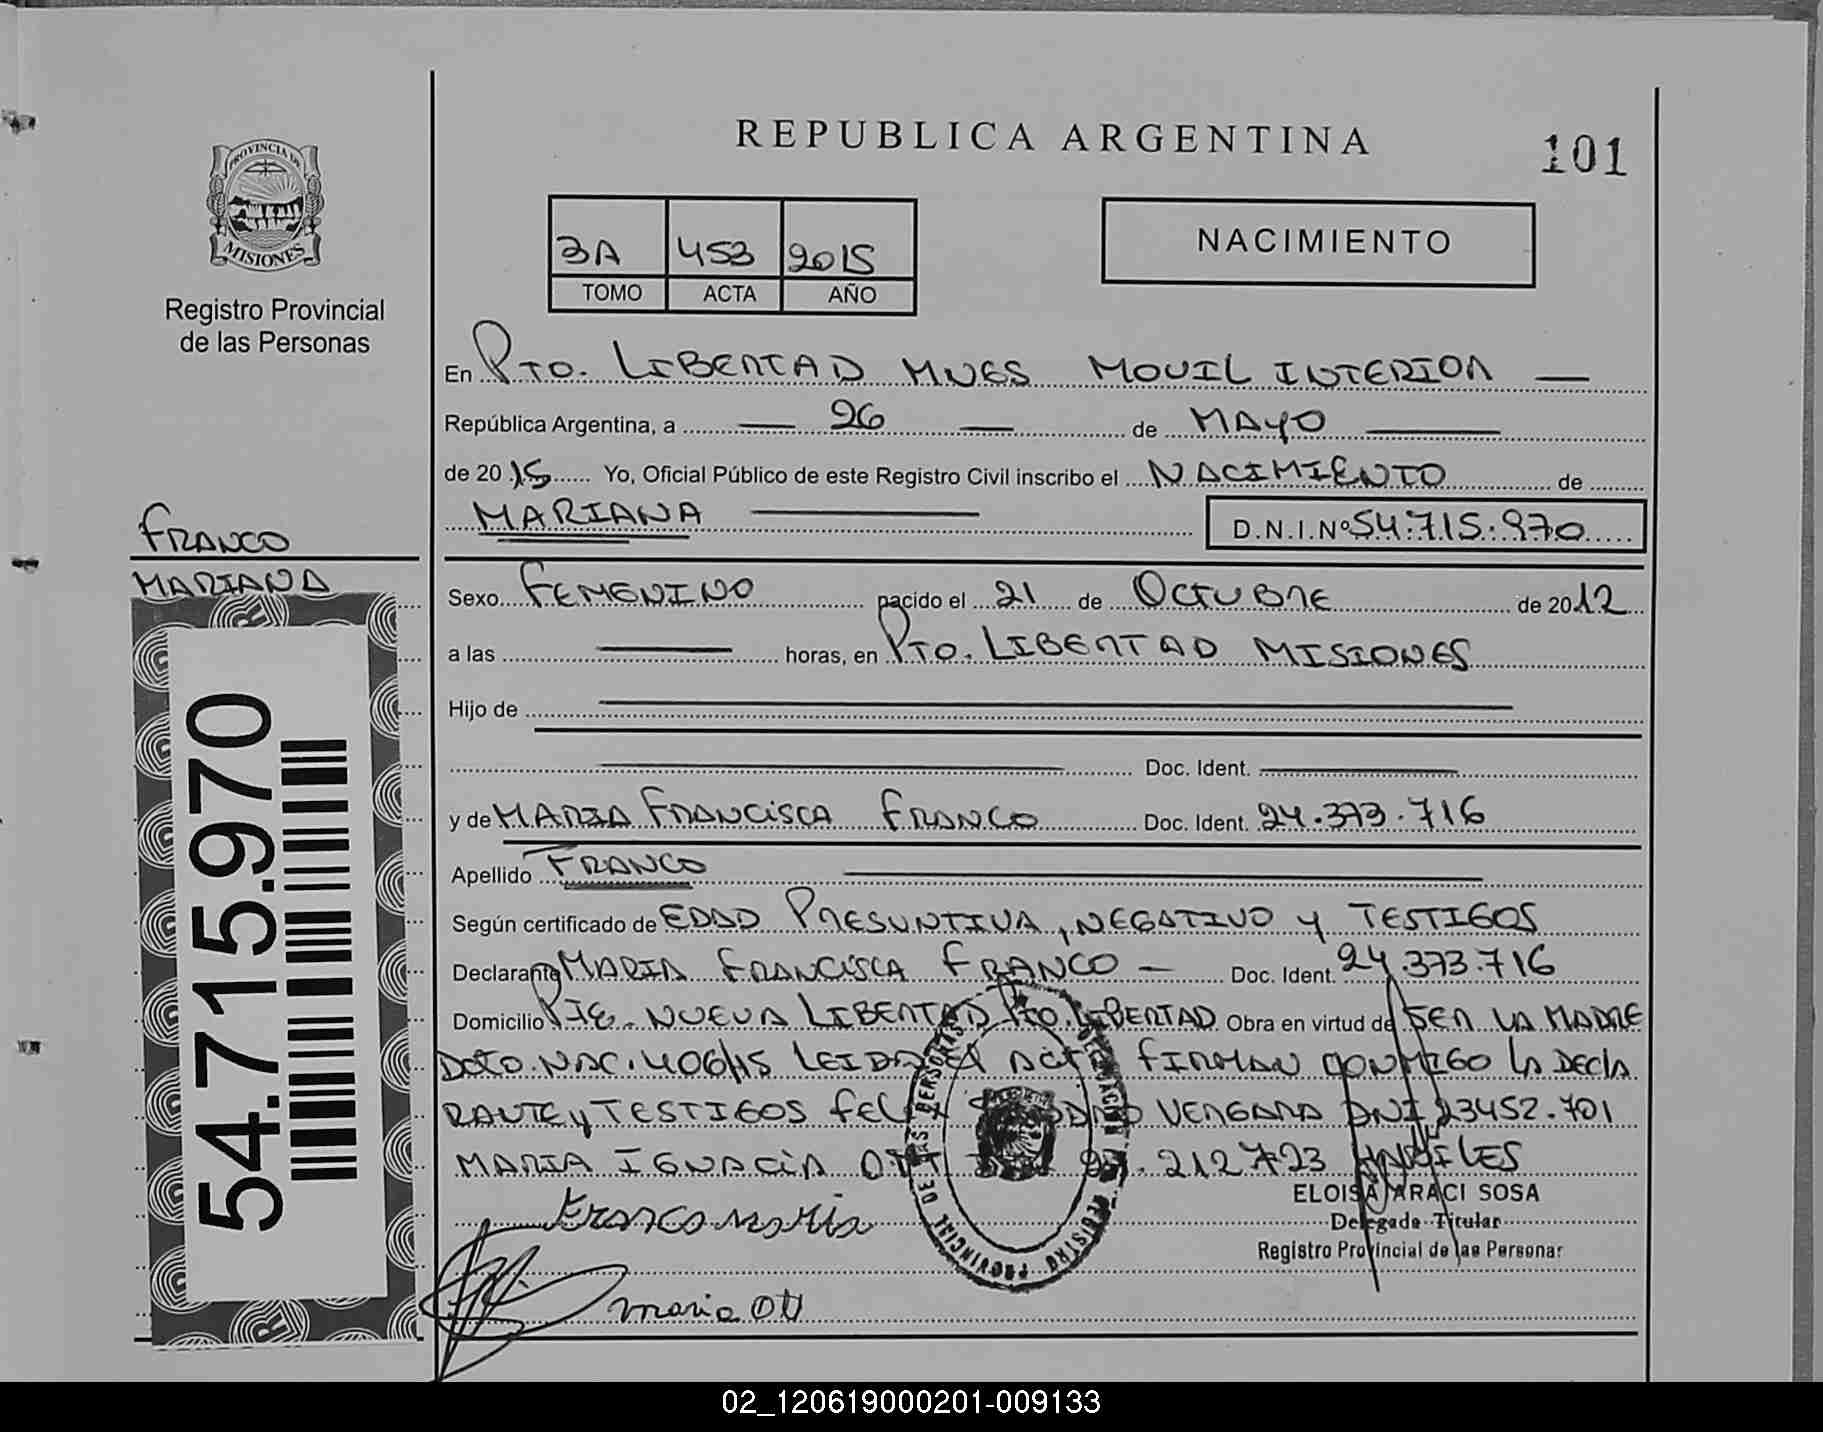 REPUBLICA ARGENTINA
101
PROVINCIA DE
MISIONES
Registro Provincial
de las Personas
3A 453 2015
TOMO ACTA AÑO
NACIMIENTO
En Pto. LIBERTAD MNES MOVIL INTERIOR
República Argentina, a 26 de MAYO
de 20 15 Yo, Oficial Público de este Registro Civil inscribo el NACIMIENTO de
MARIANA D.N.I.Nº 54.715.970
FRANCO
MARIANA
54.715.970
Sexo FEMENINO nacido el 21 de OCTUBRE de 20 12
a las horas, en Pto. LIBERTAD MISIONES
Hijo de
Doc. Ident.
y de MARIA FRANCISCA FRANCO Doc. Ident. 24.373.716
Apellido FRANCO
Según certificado de EDAD PRESUNTIVA, NEGATIVO y TESTIGOS
Declarante MARIA FRANCISCA FRANCO Doc. Ident. 24.373.716
Domicilio PJE. NUEVA LIBERTAD Pto. LIBERTAD Obra en virtud de SER LA MADRE
NAC. 406/15 LEIDA EL ACTA FIRMAN CONMIGO LA DECLA
RANTE y TESTIGOS VERGARA DNI 23452.701
MARIA IGNACIA OTT 212723 HABILES
ELOISA ARACI SOSA
Delegada Titular
Registro Provincial de las Personas
REGISTRO PROVINCIAL DE LAS PERSONAS
DELEGACION
Franco maria
maria Ott
02_120619000201-009133